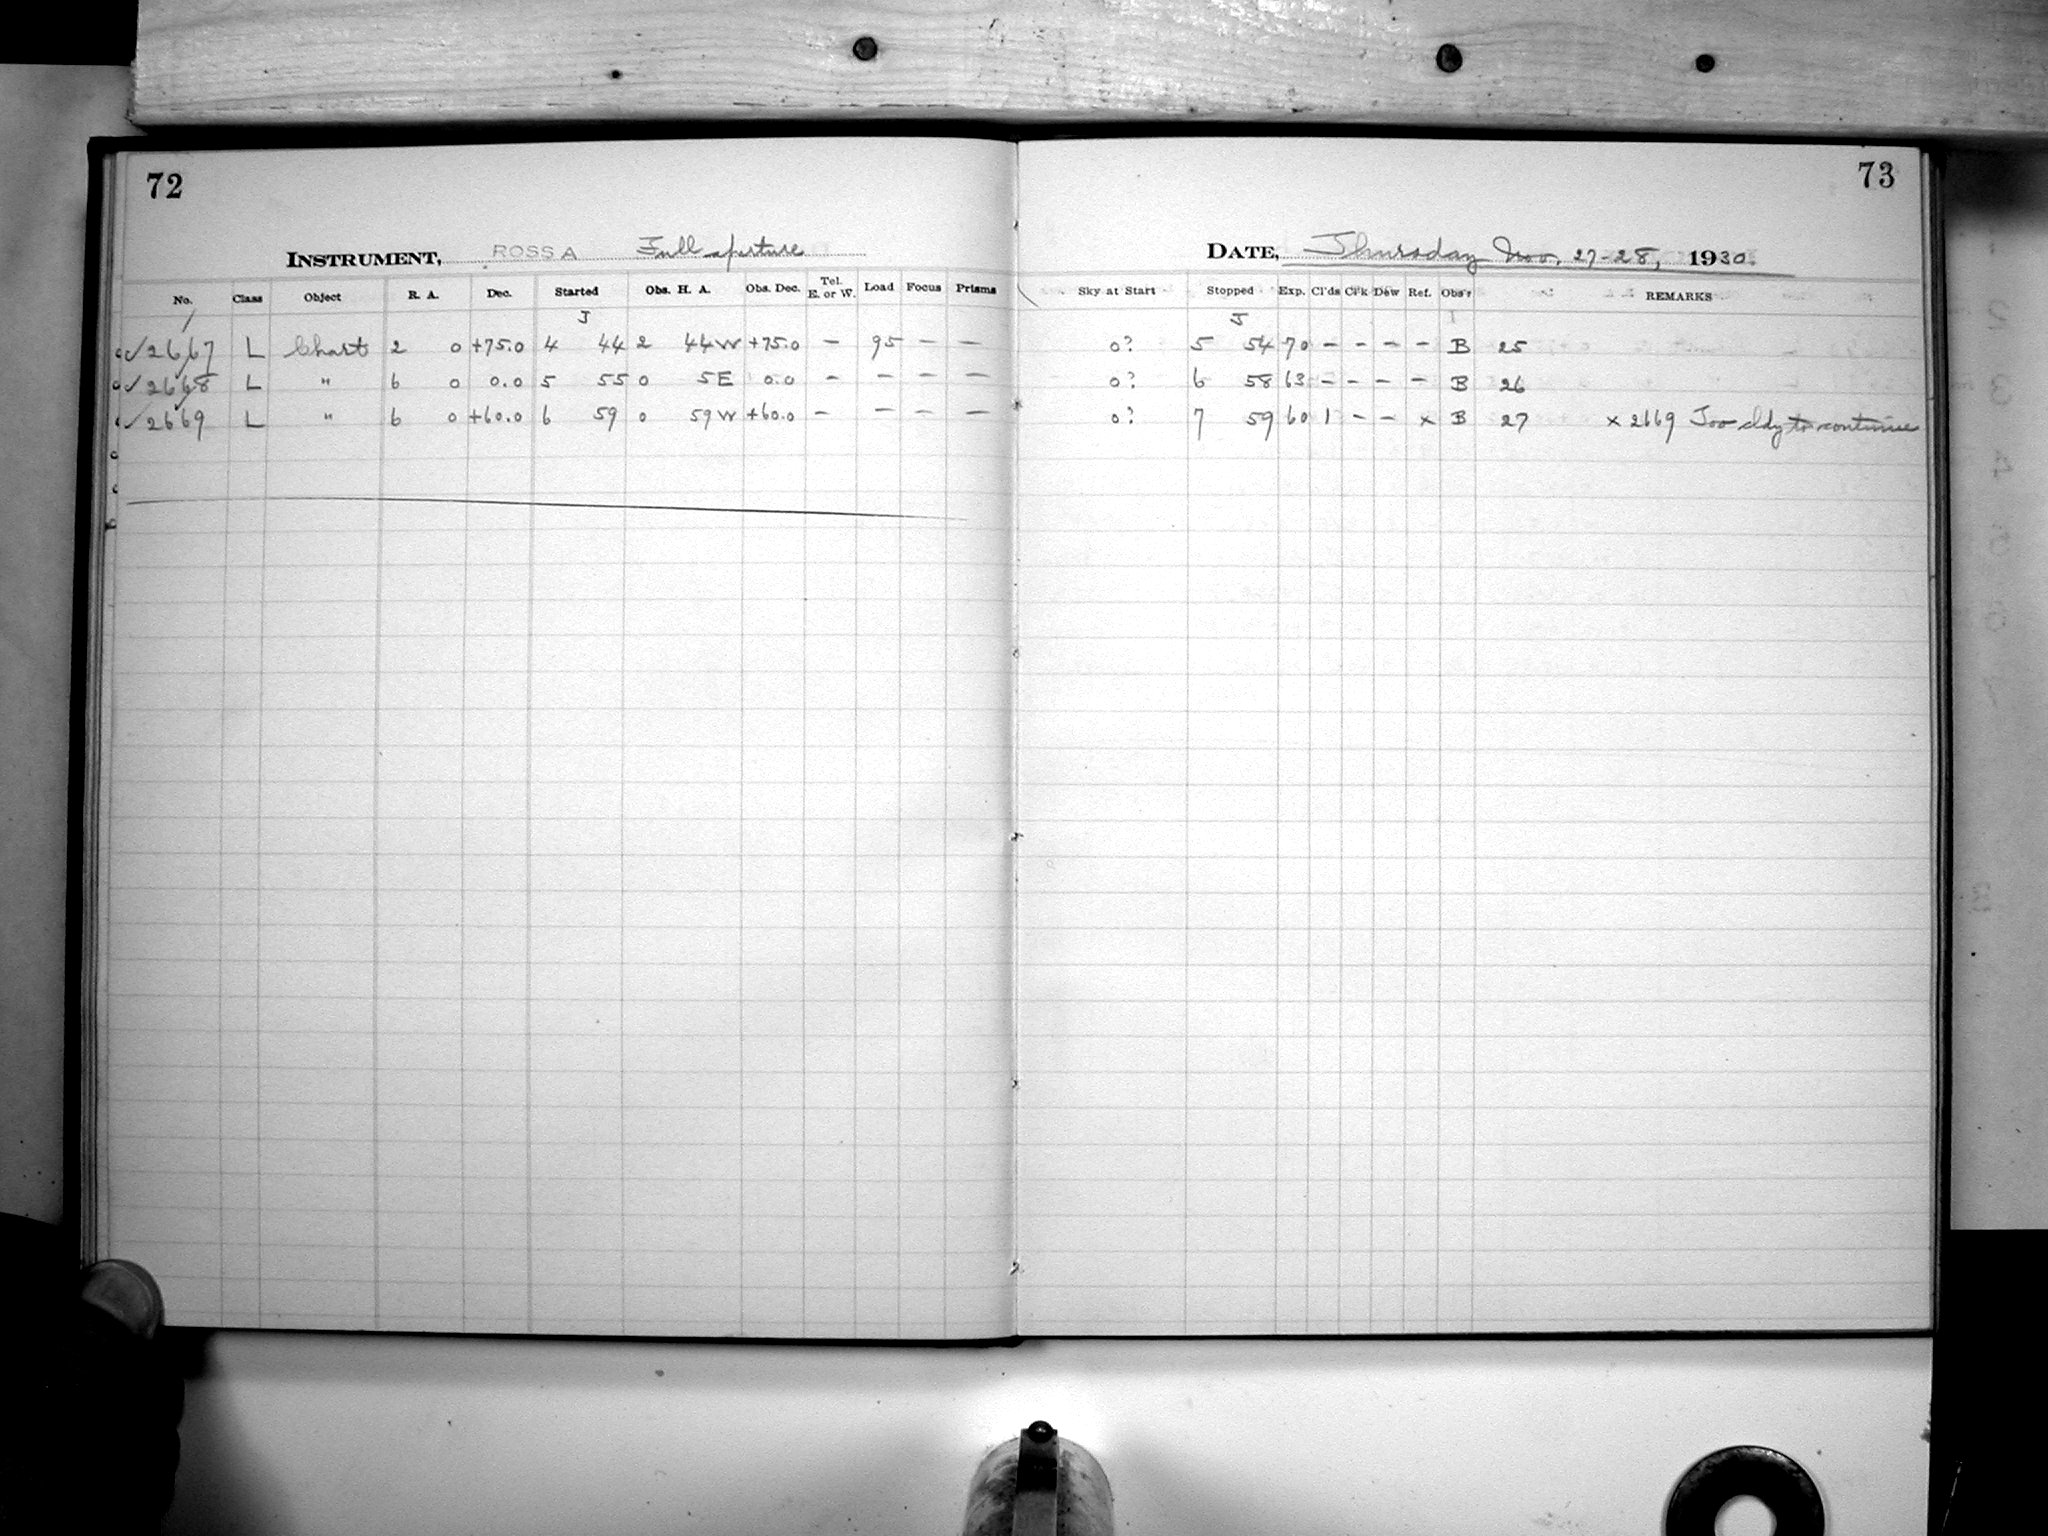 72
INSTRUMENT, ROSS A Full aperture
No. Class Object R. A. Dec. Started Obs. H. A. Obs. Dec. Tel. E. or W. Load Focus Prisms
J
✓2667 L Chart 2 0 +75.0 4 44 2 44 W +75.0 – 95 – –
✓2668 L " 6 0 0.0 5 55 0 5 E 0.0 – – – –
✓2669 L " 6 0 +60.0 6 59 0 59 W +60.0 – – – –
73
DATE, Thursday Nov. 27-28, 1930.
Sky at Start Stopped Exp. Cl'ds Cl'k Dew Ref. Obs'r REMARKS
J
0? 5 54 70 – – – – B 25
0? 6 58 63 – – – – B 26
0? 7 59 60 1 – – x B 27 x 2669 Too cldy to continue